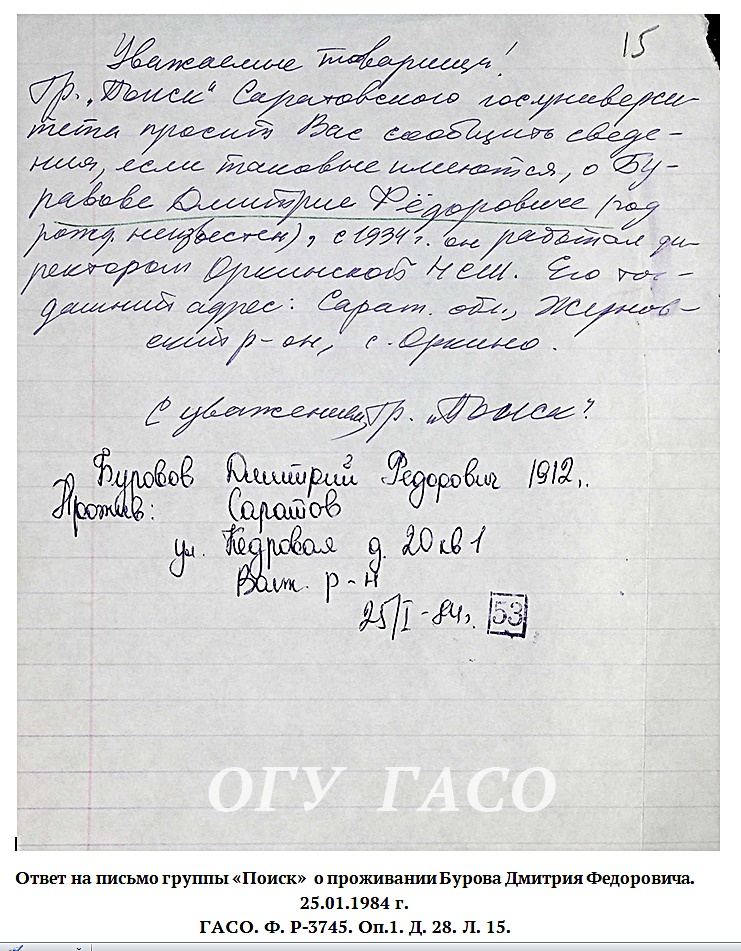 15
Уважаемые товарищи!
Гр. „Поиск" Саратовского госуниверси-
тета просит Вас сообщить сведе-
ния, если таковые имеются, о Бу-
равове Дмитрие Фёдоровиче (год
рожд. неизвестен), с 1934 г. он работал ди-
ректором Оркинской НСШ. Его тог-
дашний адрес: Сарат. обл., Жернов-
ский р-он, с. Оркино.
С уважением, гр. „Поиск".
Буровов Дмитрий Федорович 1912г.
Прожив: Саратов
ул. Кедровая д. 20 кв 1
Волж. р-н
25/I-84г. 53
ОГУ ГАСО
Ответ на письмо группы «Поиск» о проживании Бурова Дмитрия Федоровича.
25.01.1984 г.
ГАСО. Ф. Р-3745. Оп.1. Д. 28. Л. 15.